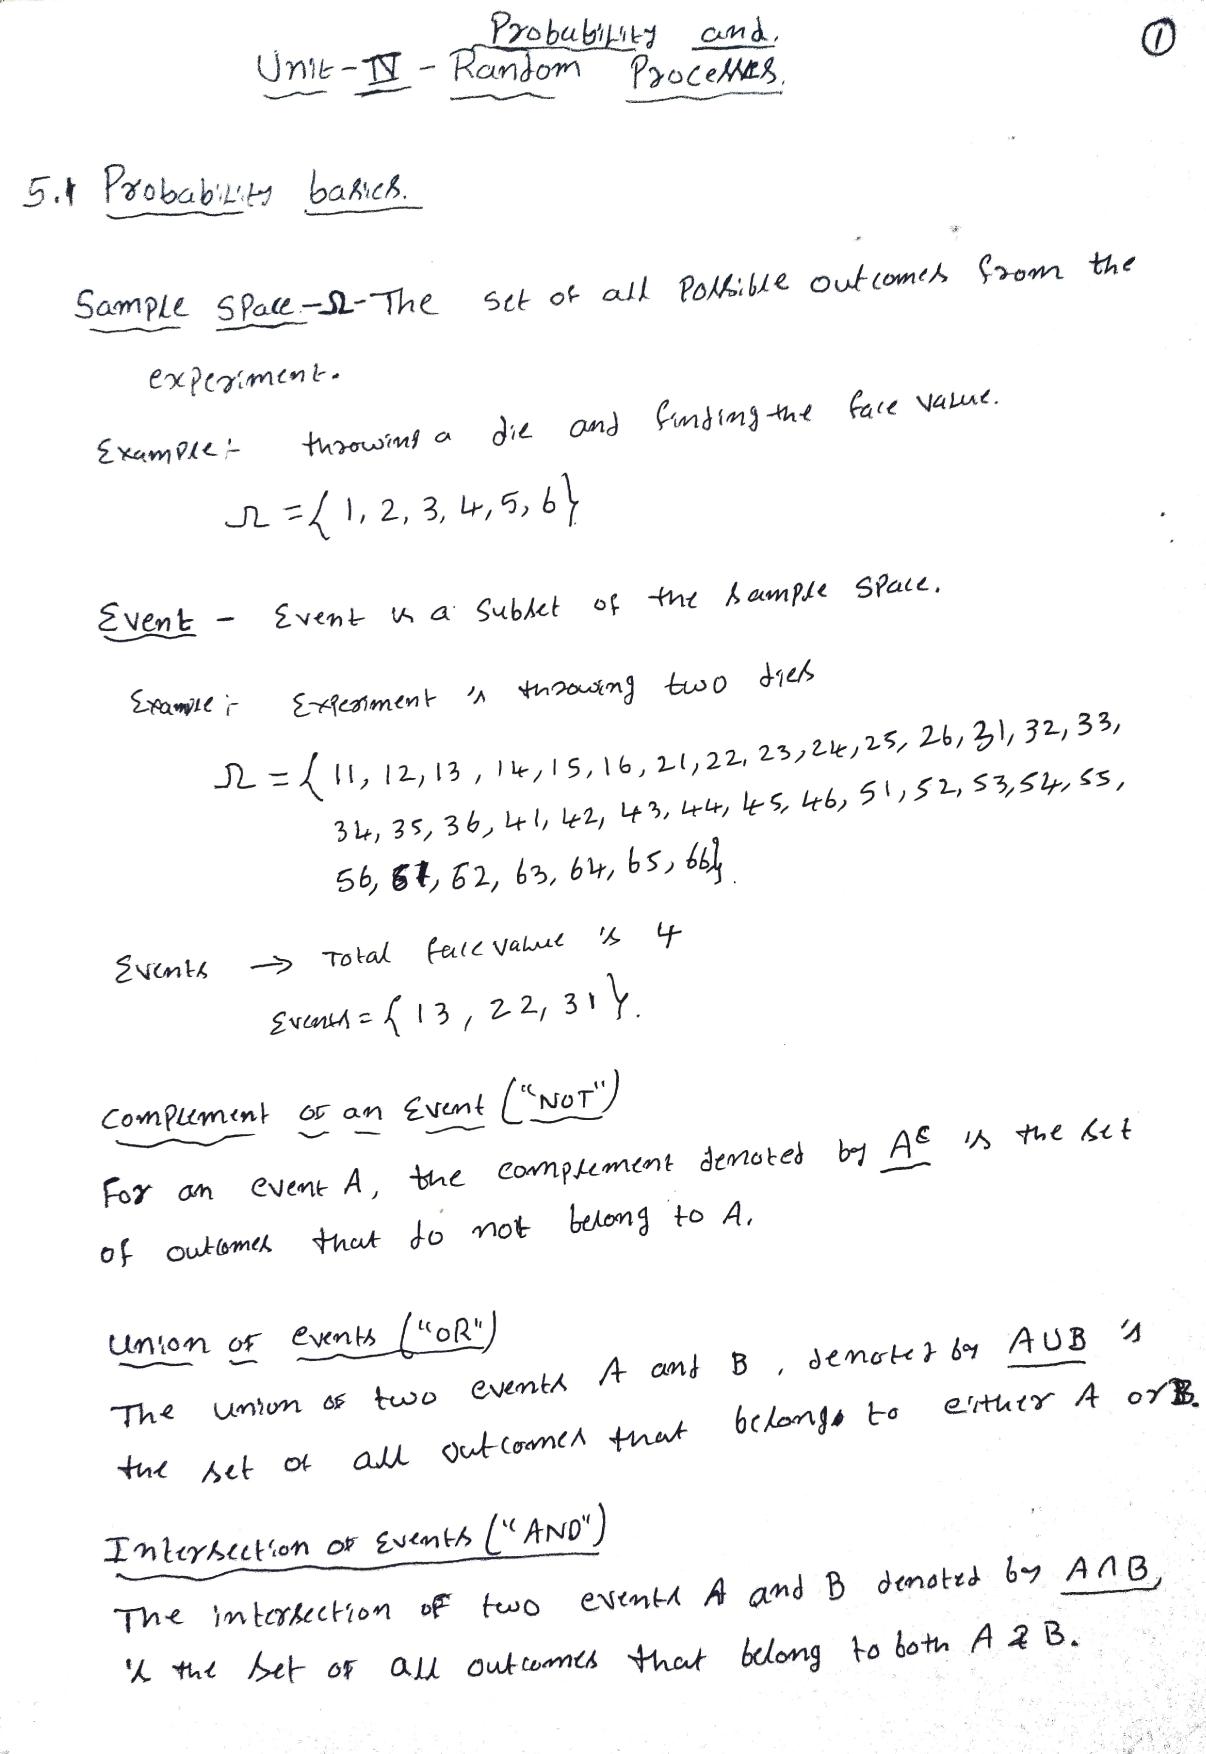 Probability and
①
Unit-IV - Random Processes.
5.1 Probability basics.
Sample Space - Ω - The set of all possible outcomes from the
experiment.
Example:- throwing a die and finding the face value.
Ω = { 1, 2, 3, 4, 5, 6 }
Event - Event is a subset of the sample space.
Example:- Experiment is throwing two dies
Ω = { 11, 12, 13, 14, 15, 16, 21, 22, 23, 24, 25, 26, 31, 32, 33,
34, 35, 36, 41, 42, 43, 44, 45, 46, 51, 52, 53, 54, 55,
56, 61, 62, 63, 64, 65, 66}.
Events → Total face value is 4
Events = { 13, 22, 31 }.
Complement of an Event ("NOT")
For an event A, the complement denoted by Aᶜ is the set
of outcomes that do not belong to A.
Union of events ("OR")
The union of two events A and B, denoted by A∪B is
the set of all outcomes that belongs to either A or B.
Intersection of Events ("AND")
The intersection of two events A and B denoted by A∩B,
is the set of all outcomes that belong to both A & B.